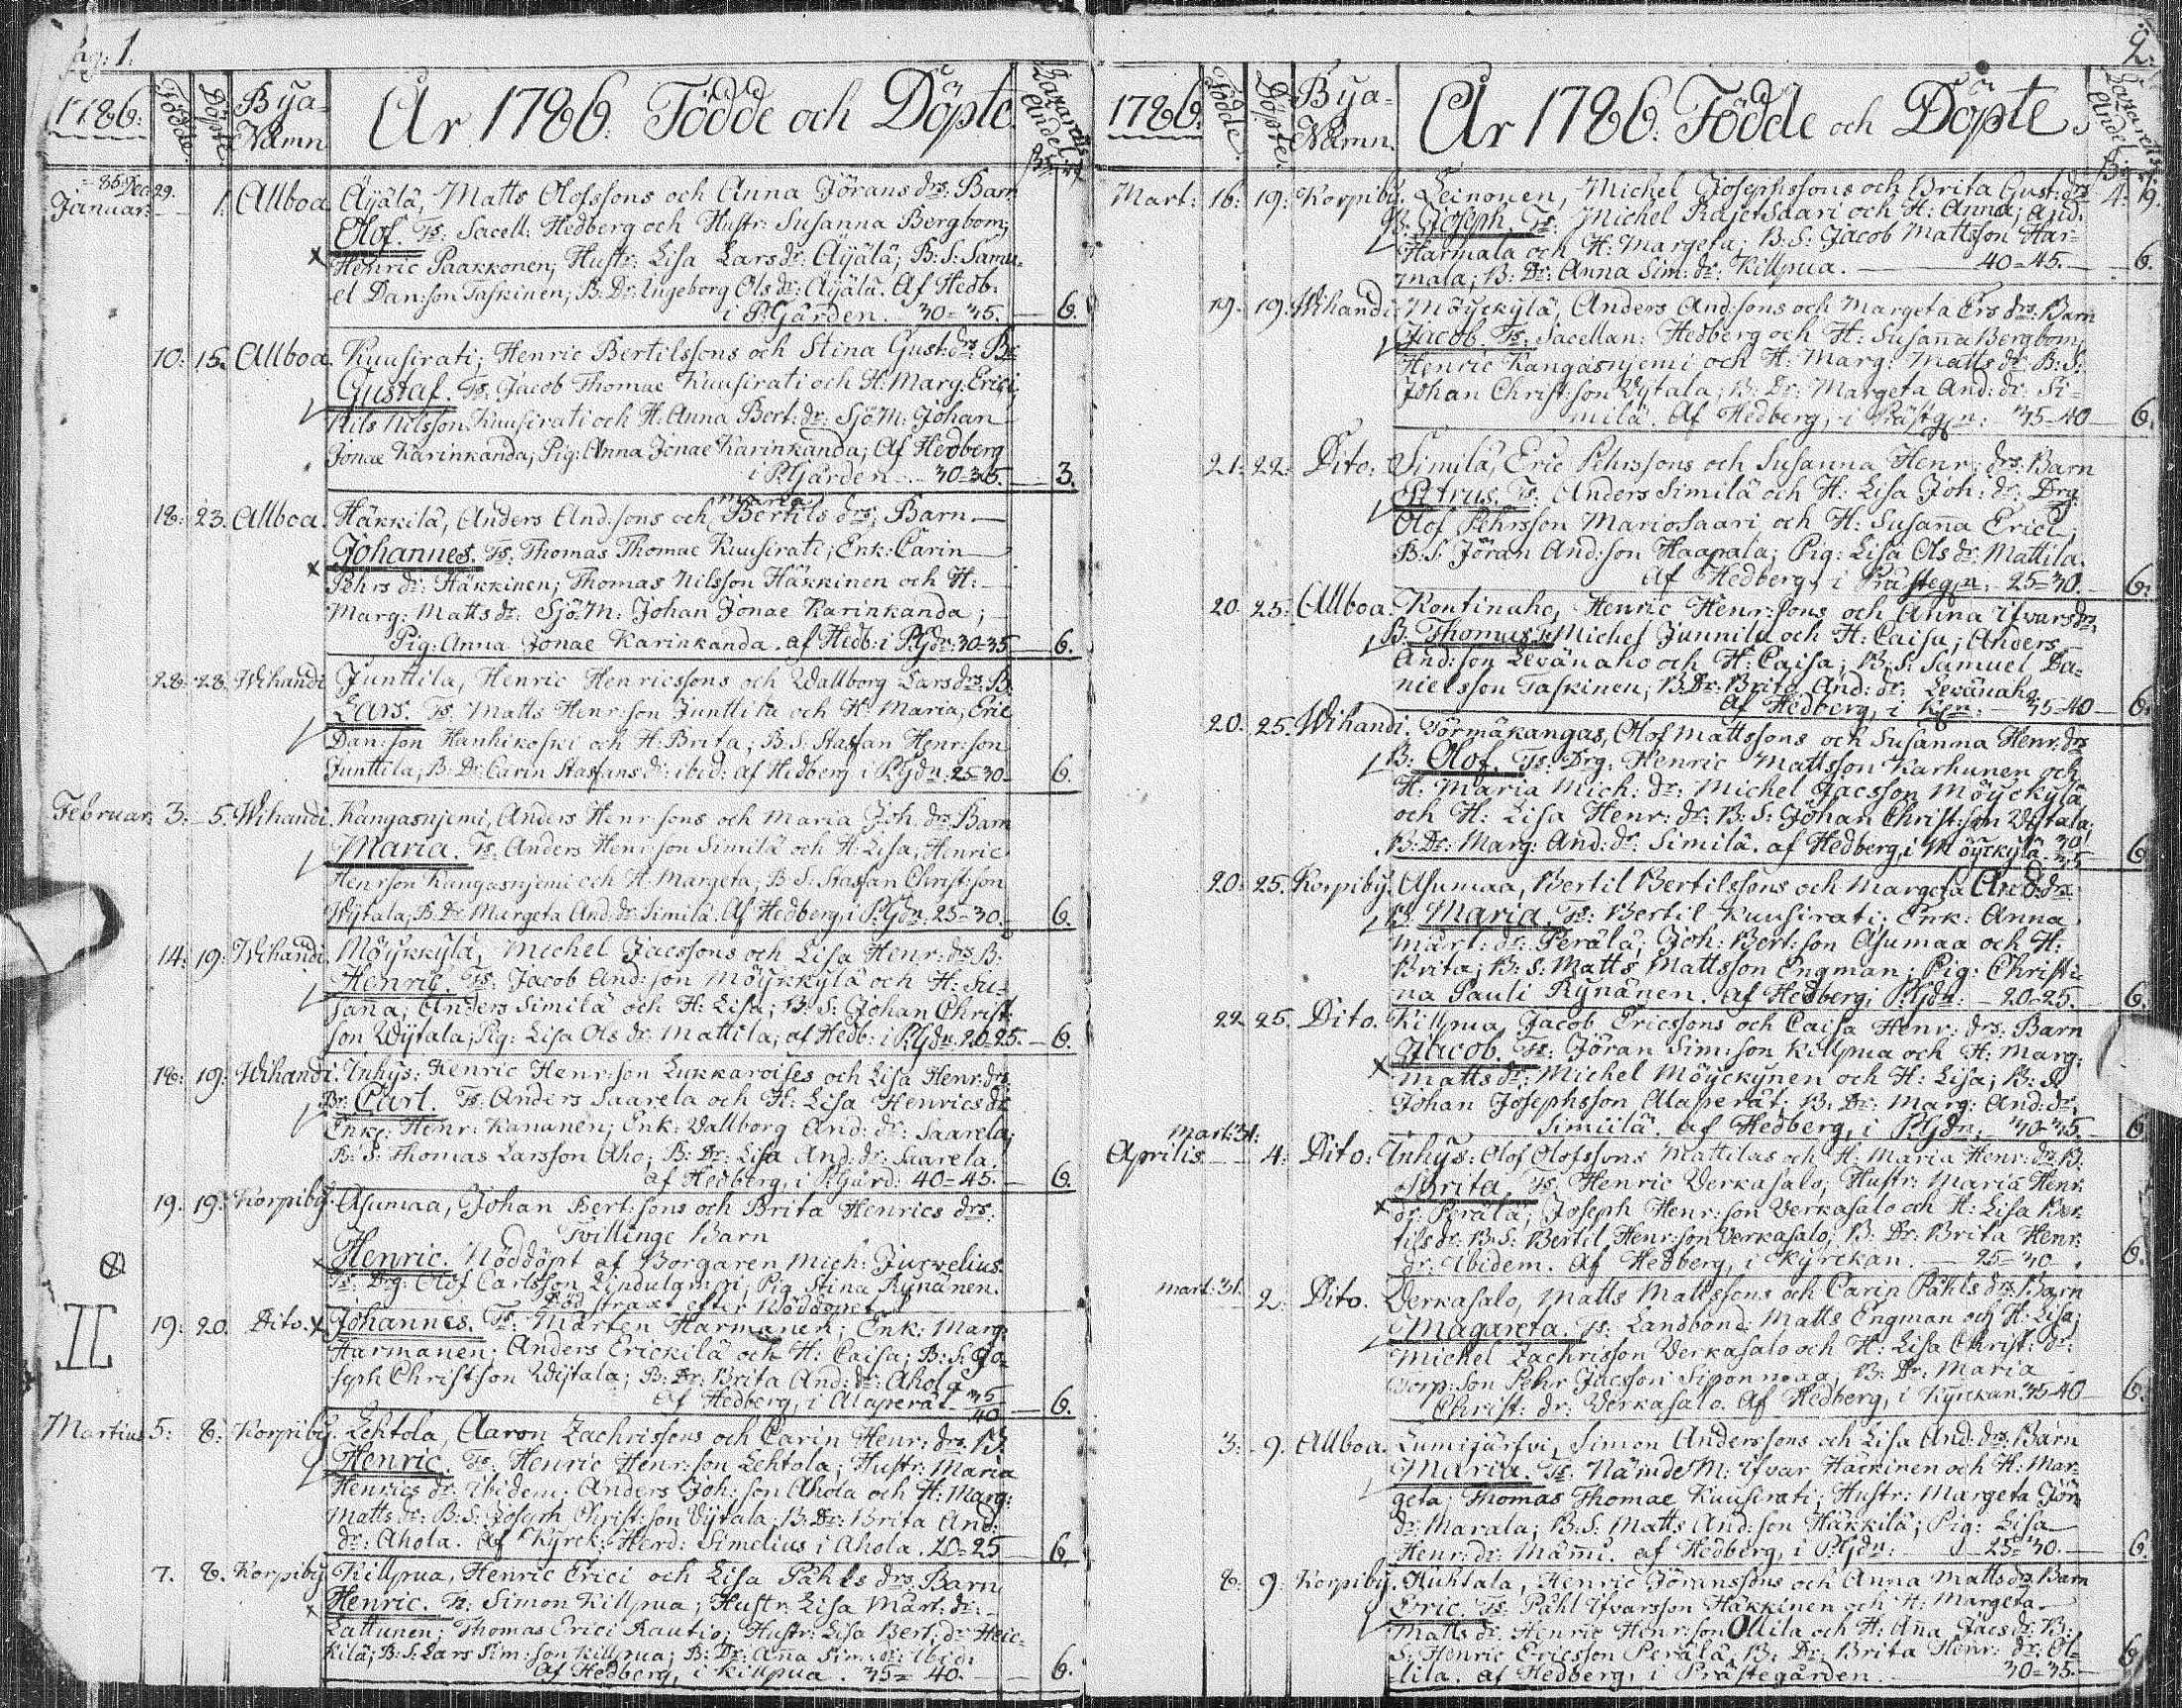 pag: 1.
1786. Födde. Döpte. Bya-Namn År 1786. Födde och Döpte. Barandels Andel.
85 Dec. 29.
Januar: 1. Allboa Äÿälä, Matts Olofssons och Anna Jörans drs: Barn
Olof. Ts: Sacell: Hedberg och Hustr: Susanna Bergbom;
Henric Paakkonen; Hustr: Lisa Lars dr: Äÿälä; B: S: Samu-
el Dan:son Taskinen; B: Dr: Ingeborg Ols dr: Äÿälä. Af Hedb:
i P:Gården. 30=35. 6.
10: 15. Allboa. Kuusirati; Henric Bertilssons och Stina Gust: drs: Br:
Gustaf. Ts: Jacob Thomae Kuusirati och H: Marg: Erici;
Nils Nilsson Kuusirati och H: Anna Bert: dr: SjöM: Johan
Jonae Karinkanda; Pig: Anna Jonae Karinkanda; Af Hedberg
i P:Gården. 30=35. 3.
Maria
18: 23. Allboa. Häkkilä, Anders And:sons och Bertils drs; Barn
Johannes. Ts: Thomas Thomae Kuusirati; Enk: Carin
Pehrs dr: Häkkinen; Thomas Nilsson Häkkinen och H:
Marg: Matts dr: SjöM: Johan Jonae Karinkanda;
Pig: Anna Jonae Karinkanda. af Hedb: i P:Gdn: 30=35 6.
28: 28. Wihandi Junttila, Henric Henricssons och Wallborg Lars drs: B:
Lars. Ts: Matts Henr:son Junttila och H: Maria, Eric
Dan:son Hanhikoski och H: Brita; B: S: Staffan Henr:son
Junttila; B: Dr: Carin Staffans dr: ibid: af Hedberg i P:Gdn: 25=30 6.
Februar: 3: 5. Wihandi. Kangasnjemi, Anders Henr:sons och Maria Joh: drs: Barn
Maria. Ts: Anders Henr:son Similä och H: Lisa; Henric
Henr:son Kangasnjemi och H: Margeta; B: S: Staffan Christ:son
Wÿtala; B: Dr: Margeta And: dr: Similä. Af Hedberg, i P:Gdn: 25=30. 6.
14: 19: Wihandi. Möÿkkÿlä, Michel Jacssons och Lisa Henr: drs: B:
Henric. Ts: Jacob And:son Möÿkkÿlä och H: Su-
sana; Anders Similä och H: Lisa; B: S: Johan Christ:
son Wÿtala; Pig: Lisa Ols dr: Mattila; af Hedb: i P:Gdn: 20=25. 6.
18: 19: Wihandi. Inhys: Henric Henr:son Lukkaroises och Lisa Henr: drs:
Br: Carl. Ts: Anders Saarela och H: Lisa Henrics dr:
Enkl: Henr: Kananen; Enk: Wallborg And: dr: Saarela;
B: S: Thomas Larsson Aho; B: Dr: Lisa And: dr: Saarela.
af Hedberg, i P:Gård: 40=45. 6.
19: 19: Korpiby. Asumaa, Johan Bert:sons och Brita Henrics drs:
Tvillinge Barn
Henric. Nöddöpt af Borgaren Mich: Juswelius.
Ts: Drg: Olof Carlsson; Pig: Stina Rynänen.
Död straxt efter Nöddopet.
19: 20. Dito. Johannes. Ts: Mårten Harmanen; Enk: Marg:
Harmanen: Anders Erickilä och H: Caisa; B: S: Jo-
seph Christ:son Wÿtala; B: Dr: Brita And: dr: Ahola
af Hedberg, i Alaperät. 35=40 6.
Martius 5: 8: Korpiby. Lehtola, Aaron Zachrissons och Carin Henr: drs. B.
Henric. Ts: Henric Henr:son Lehtola; Hustr: Maria
Henrics dr: Ibidem: Anders Joh:son Ahola och H: Marg:
Matts dr: B: S: Joseph Christ:son Wÿtala; B: Dr: Brita And:
dr: Ahola. Af Kyrck:Herd: Simelius i Ahola. 20=25 6.
7. 8. Korpiby Killpua, Henric Erici och Lisa Påhls drs: Barn
Henric. Ts: Simon Killpua; Hustr: Lisa Mårt: dr:
Lattunen; Thomas Erici Rautio; Hustr: Lisa Bert: dr: Heic-
kilä; B: S: Lars Sim:son Killpua; B: Dr: Ana Sim: dr: ibid:
af Hedberg, i Killpua. 35=40. 6.
2.
1786. Födde. Döpte. Bya-Namn. År 1786. Födde och Döpte.
Mart: 16: 19: Korpiby. Leinonen, Michel Josephssons och Brita Gust: drs
B: Joseph. Ts: Michel Rajersaari och H: Anna; And:
Harmala och H: Margeta; B: S: Jacob Mattsson Har-
mala; B: Dr: Anna Sim: dr: Killpua. 40=45. 6.
19. 19: Wihandi. Möÿckÿlä, Anders And:sons och Margeta Ers drs: Barn
Jacob. Ts: Sacellan: Hedberg och H: Susana Bergbom;
Henric Kangasnjemi och H: Marg: Matts dr: B: S:
Johan Christ:son Wÿtala; B: Dr: Margeta And: dr: Si-
milä. Af Hedberg, i Prästg:n: 35=40 6.
21: 22: Dito: Similä, Eric Pehrssons och Susanna Henr: drs: Barn
Petrus. Ts: Anders Similä och H: Lisa Joh: dr: Drg:
Olof Pehrsson Mariosaari och H: Susana Erici;
B: S: Jöran And:son Haapala; Pig: Lisa Ols dr: Mattila.
Af Hedberg, i Prästeg:n. 25=30. 6.
20. 25: Allboa. Kontinaho, Henric Henr:sons och Anna Ifvars drs:
B: Thomas. Michel Junnila och H: Caisa; Anders
And:son Levänaho och H: Caisa; B: S: Samuel Da-
nielsson Taskinen; B: Dr: Brita And: dr: Levänaho
Af Hedberg, i K:n: 35=40 6.
20. 25. Wihandi. Törmäkangas, Olof Mattssons och Susanna Henr: drs
B: Olof. Ts: Drg: Henric Mattsson Karhunen och
H: Maria Mich: dr: Michel Jacsson Möÿckÿlä
och H: Lisa Henr: dr: B: S: Johan Christ:son Wÿtala;
B: Dr: Marg: And: dr: Similä. af Hedberg, i Möÿckÿlä 30=35 6.
20: 25. Korpiby. Asumaa, Bertil Bertilssons och Margeta And: drs:
B: Maria. Ts: Bertil Kuusirati; Enk: Anna
Mårt: dr: Perälä; Joh: Bert:son Asumaa och H:
Brita; B: S: Matts Mattsson Engman; Pig: Christi-
na Pauli Rynänen. af Hedberg, i P:Gdn: 20=25. 6.
22 25. Dito. Killpua, Jacob Ericssons och Caisa Henr: drs: Barn
Jacob. Ts: Jöran Sim:son Killpua och H: Marg:
Matts dr: Michel Möÿckynen och H: Lisa; B: S:
Johan Josephsson Alaperät. B: Dr: Marg: And: dr.
Similä. af Hedberg, i P:Gdn: 30=35. 6
Mart: 31:
Aprilis 4: Dito: Inhys: Olof Olofssons Mattilas och H: Maria Henr: dr: B:
Brita. Ts: Henric Verkasalo; Hustr: Maria Henr:
dr: Perälä; Joseph Henr:son Verkasalo och H: Lisa Ber-
tils dr: B: S: Bertil Henr:son Verkasalo; B: Dr: Brita Henr:
dr: Ibidem. Af Hedberg, i Kyrckan. 25=30. 6.
Mart: 31. 2. Dito. Verkasalo, Matts Mattssons och Carin Påhls drs: Barn
Magareta. Ts: Landbond: Matts Engman och H: Lisa;
Michel Zachrisson Verkasalo och H: Lisa Christ: dr:
Torp:son Pehr Jacsson Siponmaa; B: Dr: Maria
Christ: dr: Verkasalo. Af Hedberg, i Kyrckan 35=40 6.
3: 9. Allboa. Lumijärfvi, Simon Anderssons och Lisa And: drs. Barn
Maria. Ts: NämdeM: Ifvar Häckinen och H: Mar-
geta; Thomas Thomae Kuusirati; Hustr: Margeta Jör:
dr: Marala; B: S: Matts And:son Häkkilä; Pig: Lisa
Henr: dr: Mämi. af Hedberg, i P:Gdn: 25=30. 6.
8: 9: Korpiby. Huhtala, Henric Jöranssons och Anna Matts drs Barn
Eric. Ts: Påhl Ifvarsson Häkkinen och H: Margeta
Matts dr: Henric Henr:son Ollila och H: Ana Jacs dr: B:
S: Henric Ericsson Perälä; B: Dr: Brita Henr: dr: Ol-
lila. af Hedberg, i Prästegården. 30=35. 6